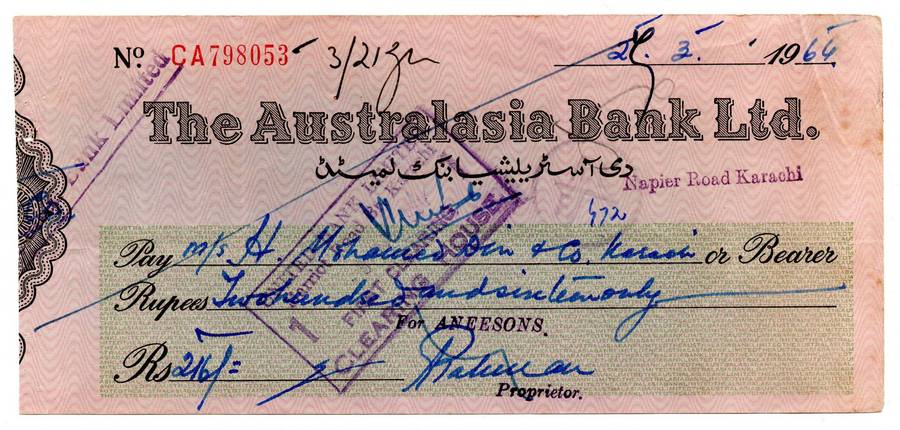 No. CA798053
3/21
3. 1964
The Australasia Bank Ltd.
دی آسٹریلیشیا بنک لمیٹڈ
Napier Road Karachi
Bank Limited
Pay M/s H. Mohamed Din & Co. Karachi or Bearer
Rupees Two hundred and sixteen only
For ANEESONS.
1 FIRST CLEARING
CLEARING HOUSE
Rs 216/=
Proprietor.